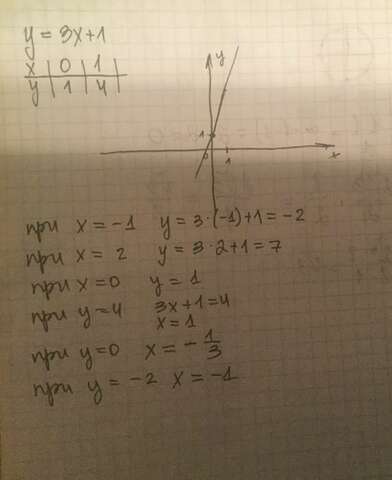 y = 3x+1
x | 0 | 1 |
y | 1 | 4 |
y
1
0 1
x
при x = -1 y = 3·(-1)+1 = -2
при x = 2 y = 3·2+1 = 7
при x = 0 y = 1
при y = 4 3x+1 = 4
x = 1
при y = 0 x = -1/3
при y = -2 x = -1